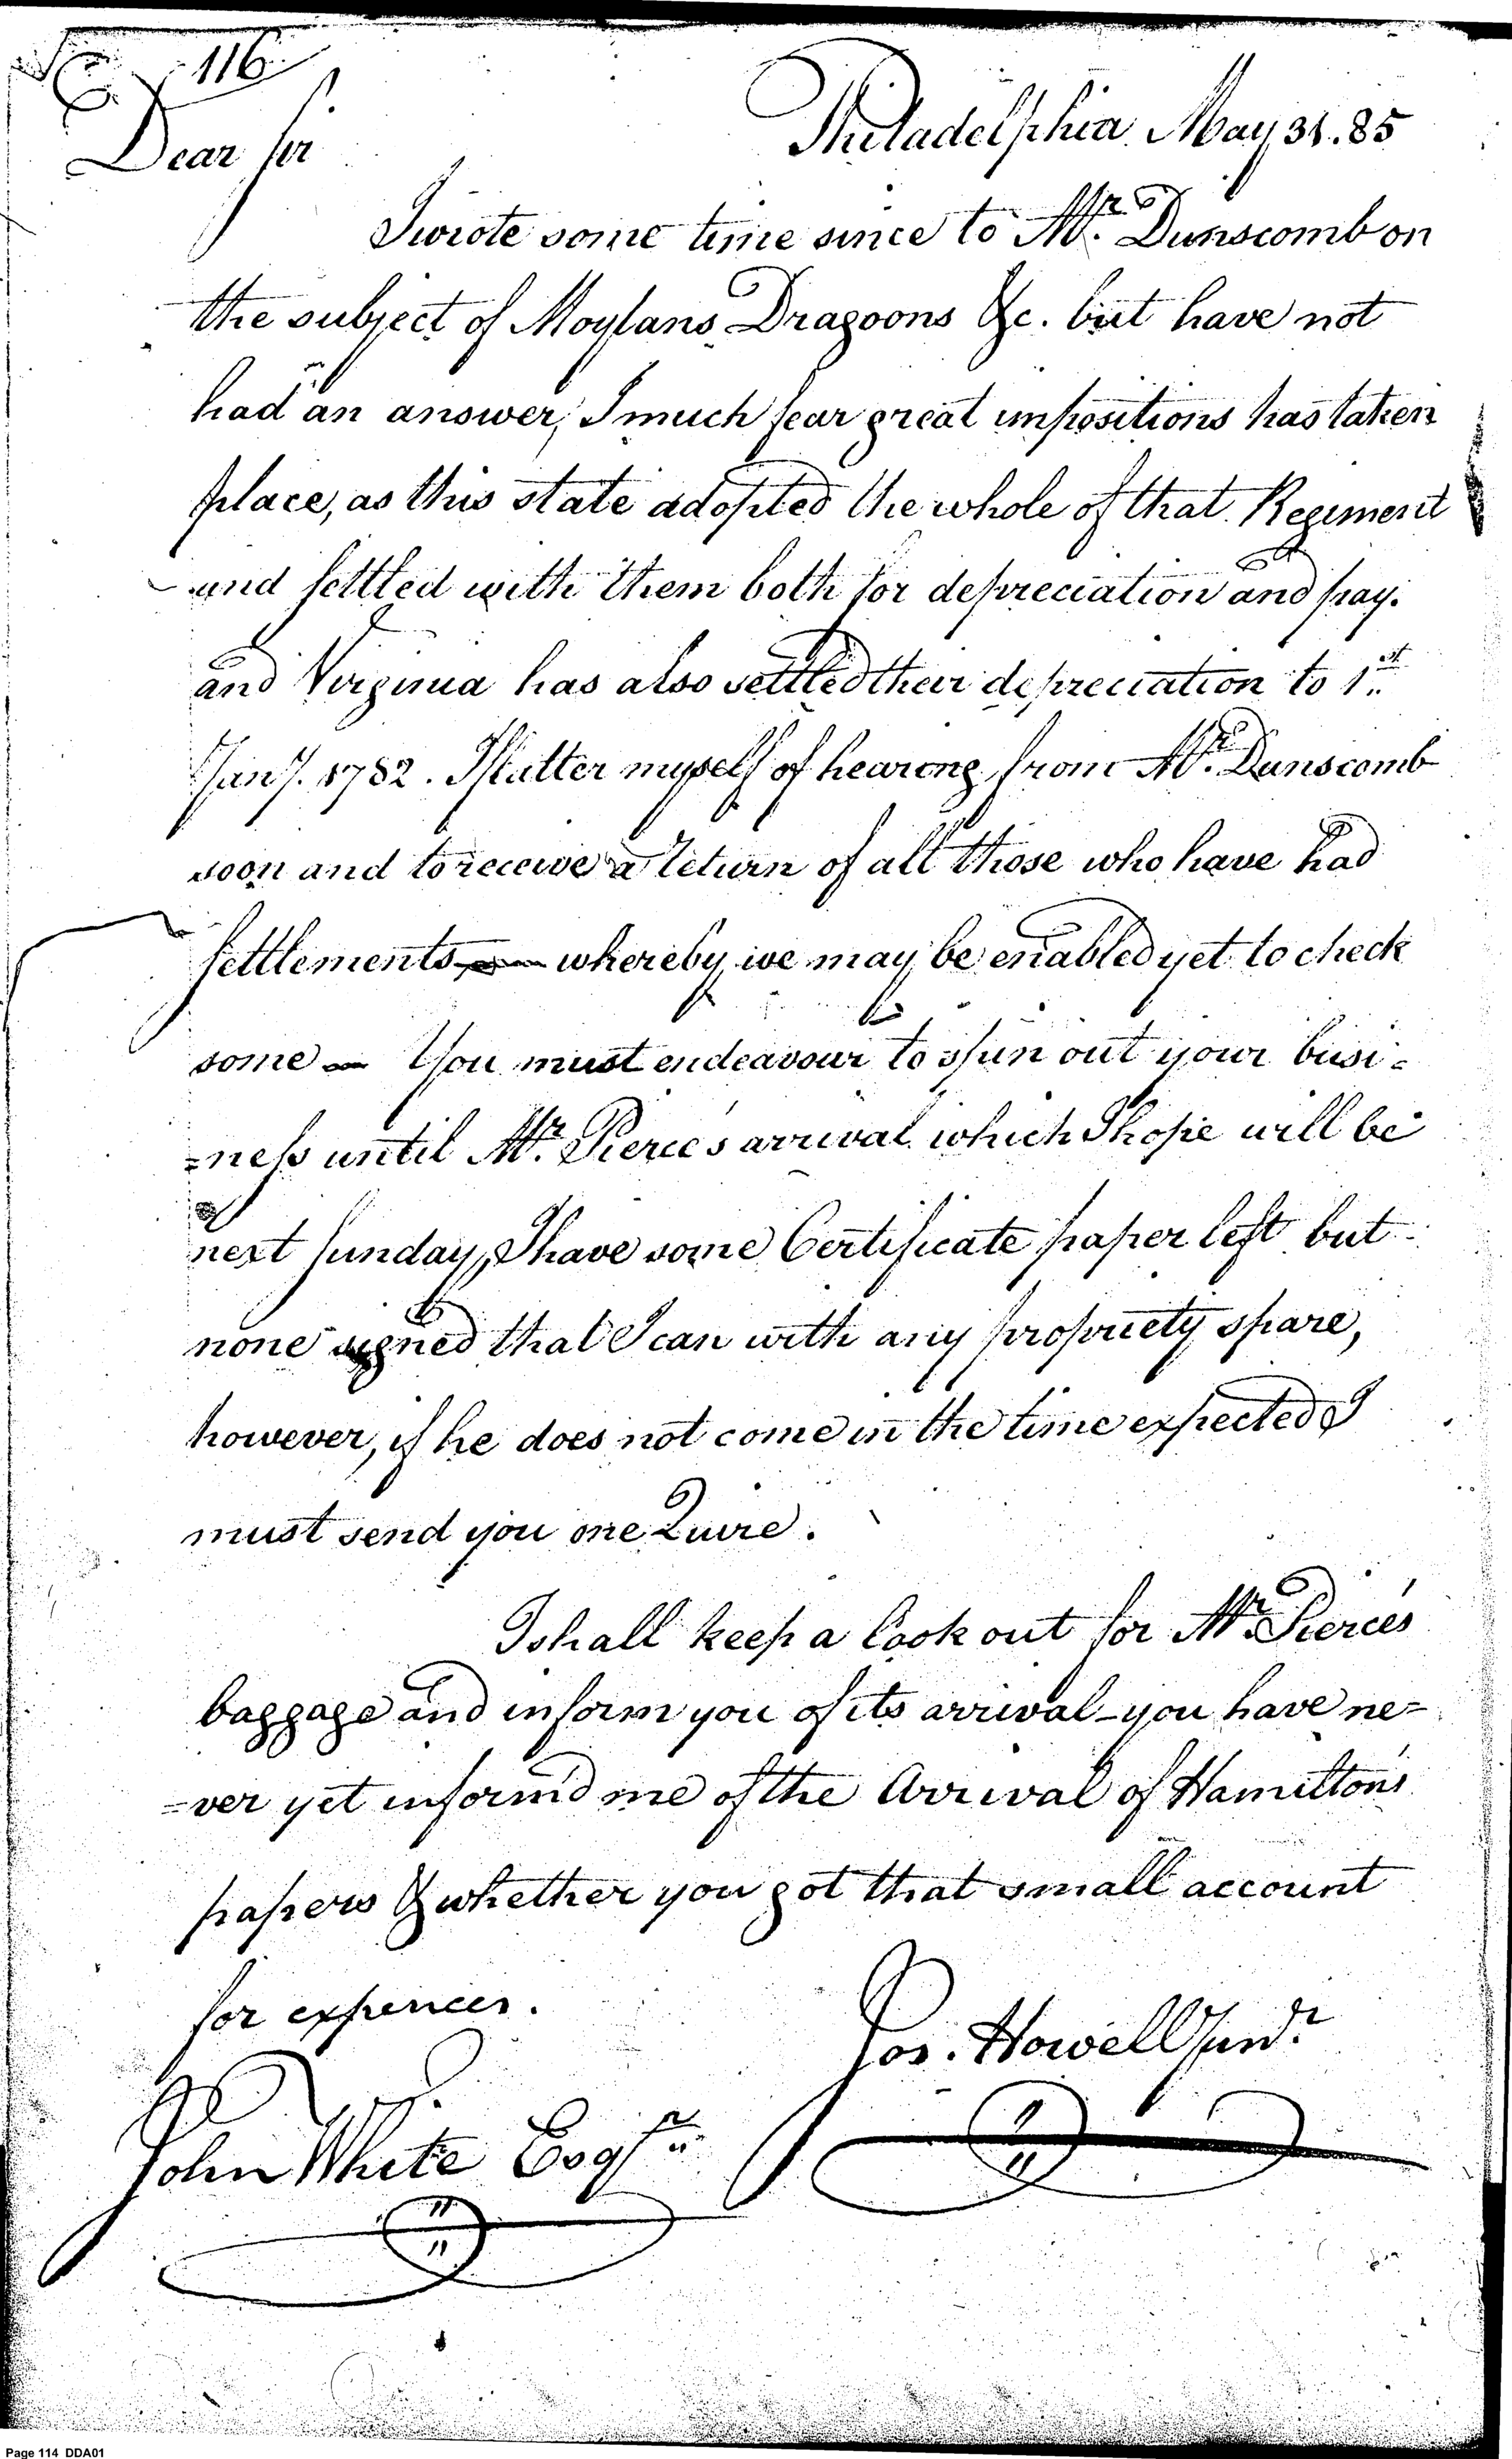 116
Philadelphia May 31. 85
Dear Sir
I wrote some time since to Mr. Dunscomb on
the subject of Moylans Dragoons &c. but have not
had an answer, I much fear great impositions has taken
place, as this state adopted the whole of that Regiment
and settled with them both for depreciation and pay.
and Virginia has also settled their depreciation to 1st
Jany. 1782. I flatter myself of hearing from Mr. Dunscomb
soon and to receive a return of all those who have had
settlements — whereby we may be enabled yet to check
some — You must endeavour to spin out your busi=
=ness until Mr. Pierce's arrival which I hope will be
next Sunday, I have some Certificate paper left but
none signed that I can with any propriety spare,
however, if he does not come in the time expected I
must send you one Quire.
I shall keep a look out for Mr. Pierce's
baggage and inform you of its arrival - you have ne=
=ver yet inform'd me of the Arrival of Hamilton's
papers & whether you got that small account
for expences.
Jos. Howell Junr.
John White Esqr.
Page 114 DDA01